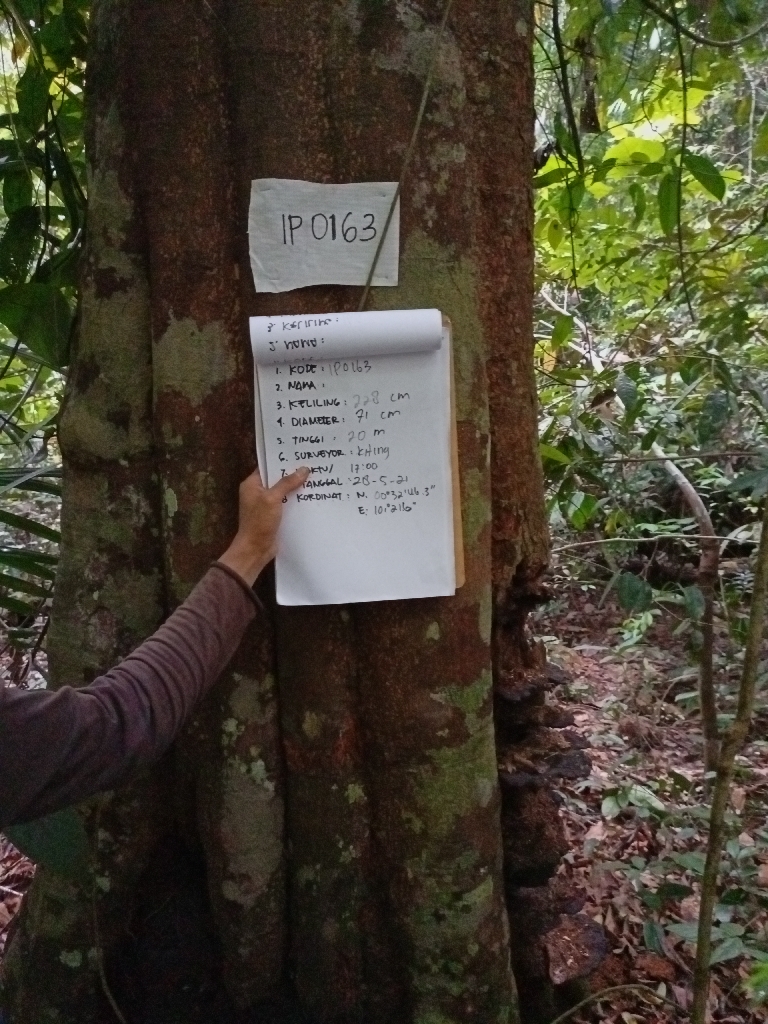 IP 0163
3. KELILING :
2. NAMA :
1. KODE : IP0163
2. NAMA :
3. KELILING : 228 cm
4. DIAMETER : 71 cm
5. TINGGI : 20 m
6. SURVEYOR : KHing
7. 17:00
TANGGAL : 28-5-21
8 KORDINAT : N. 00°32'46.3"
E: